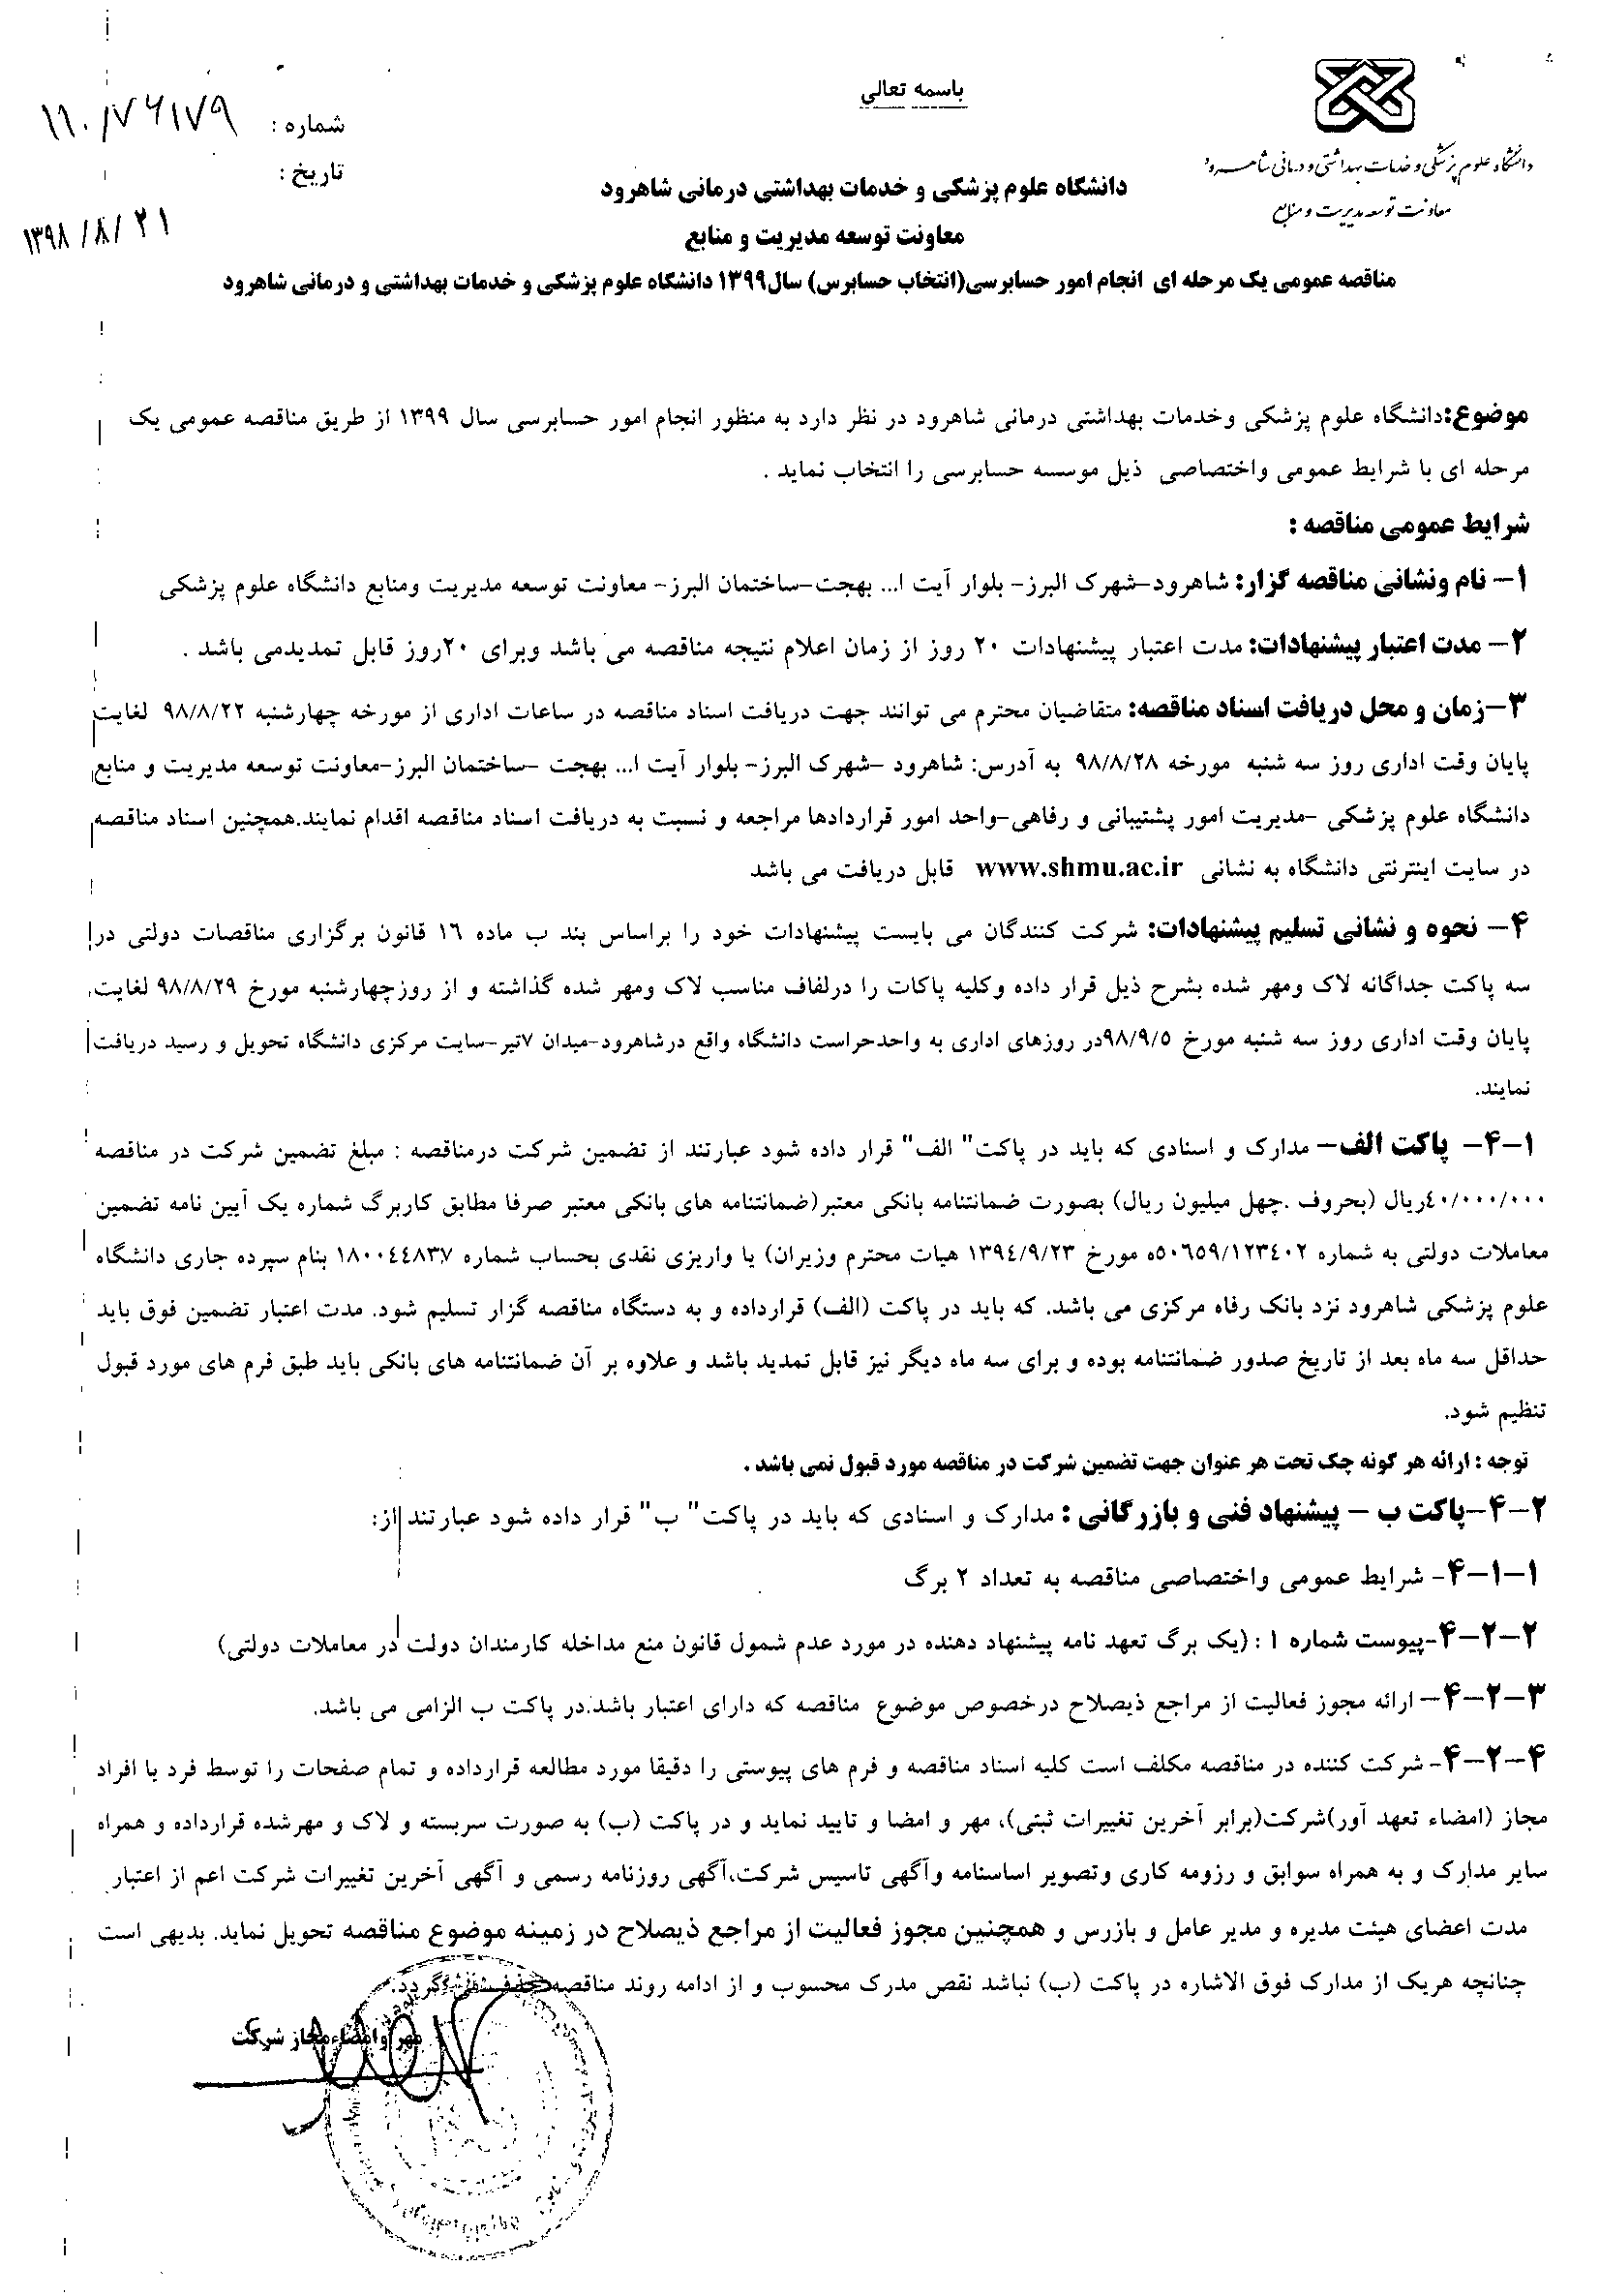 باسمه تعالی
شماره : ۱۱۰/۷۶۱۷۹
تاریخ :
۱۳۹۸/۸/۲۱
دانشگاه علوم پزشکی و خدمات بهداشتی و درمانی شاهرود
معاونت توسعه مدیریت و منابع
دانشگاه علوم پزشکی و خدمات بهداشتی درمانی شاهرود
معاونت توسعه مدیریت و منابع
مناقصه عمومی یک مرحله ای انجام امور حسابرسی(انتخاب حسابرس) سال۱۳۹۹ دانشگاه علوم پزشکی و خدمات بهداشتی و درمانی شاهرود
موضوع:دانشگاه علوم پزشکی وخدمات بهداشتی درمانی شاهرود در نظر دارد به منظور انجام امور حسابرسی سال ۱۳۹۹ از طریق مناقصه عمومی یک
مرحله ای با شرایط عمومی واختصاصی ذیل موسسه حسابرسی را انتخاب نماید .
شرایط عمومی مناقصه :
۱- نام ونشانی مناقصه گزار: شاهرود-شهرک البرز- بلوار آیت ا... بهجت-ساختمان البرز- معاونت توسعه مدیریت ومنابع دانشگاه علوم پزشکی
۲- مدت اعتبار پیشنهادات: مدت اعتبار پیشنهادات ۲۰ روز از زمان اعلام نتیجه مناقصه می باشد وبرای ۲۰روز قابل تمدیدمی باشد .
۳-زمان و محل دریافت اسناد مناقصه: متقاضیان محترم می توانند جهت دریافت اسناد مناقصه در ساعات اداری از مورخه چهارشنبه ۹۸/۸/۲۲ لغایت
پایان وقت اداری روز سه شنبه مورخه ۹۸/۸/۲۸ به آدرس: شاهرود -شهرک البرز- بلوار آیت ا... بهجت -ساختمان البرز-معاونت توسعه مدیریت و منابع
دانشگاه علوم پزشکی -مدیریت امور پشتیبانی و رفاهی-واحد امور قراردادها مراجعه و نسبت به دریافت اسناد مناقصه اقدام نمایند.همچنین اسناد مناقصه
در سایت اینترنتی دانشگاه به نشانی www.shmu.ac.ir قابل دریافت می باشد
۴- نحوه و نشانی تسلیم پیشنهادات: شرکت کنندگان می بایست پیشنهادات خود را براساس بند ب ماده ۱۶ قانون برگزاری مناقصات دولتی در
سه پاکت جداگانه لاک ومهر شده بشرح ذیل قرار داده وکلیه پاکات را درلفاف مناسب لاک ومهر شده گذاشته و از روزچهارشنبه مورخ ۹۸/۸/۲۹ لغایت
پایان وقت اداری روز سه شنبه مورخ ۹۸/۹/۵در روزهای اداری به واحدحراست دانشگاه واقع درشاهرود-میدان ۷تیر-سایت مرکزی دانشگاه تحویل و رسید دریافت
نمایند.
۴-۱- پاکت الف- مدارک و اسنادی که باید در پاکت" الف" قرار داده شود عبارتند از تضمین شرکت درمناقصه : مبلغ تضمین شرکت در مناقصه
۴۰/۰۰۰/۰۰۰ریال (بحروف .چهل میلیون ریال) بصورت ضمانتنامه بانکی معتبر(ضمانتنامه های بانکی معتبر صرفا مطابق کاربرگ شماره یک آیین نامه تضمین
معاملات دولتی به شماره ۵۰۶۵۹/۱۲۳۴۰۲ه مورخ ۱۳۹۴/۹/۲۳ هیات محترم وزیران) یا واریزی نقدی بحساب شماره ۱۸۰۰۴۴۸۳۷ بنام سپرده جاری دانشگاه
علوم پزشکی شاهرود نزد بانک رفاه مرکزی می باشد. که باید در پاکت (الف) قرارداده و به دستگاه مناقصه گزار تسلیم شود. مدت اعتبار تضمین فوق باید
حداقل سه ماه بعد از تاریخ صدور ضمانتنامه بوده و برای سه ماه دیگر نیز قابل تمدید باشد و علاوه بر آن ضمانتنامه های بانکی باید طبق فرم های مورد قبول
تنظیم شود.
توجه : ارائه هر گونه چک تحت هر عنوان جهت تضمین شرکت در مناقصه مورد قبول نمی باشد .
۴-۲-پاکت ب - پیشنهاد فنی و بازرگانی : مدارک و اسنادی که باید در پاکت" ب" قرار داده شود عبارتند از:
۴-۱-۱- شرایط عمومی واختصاصی مناقصه به تعداد ۲ برگ
۴-۲-۲-پیوست شماره ۱ : (یک برگ تعهد نامه پیشنهاد دهنده در مورد عدم شمول قانون منع مداخله کارمندان دولت در معاملات دولتی)
۴-۲-۳- ارائه مجوز فعالیت از مراجع ذیصلاح درخصوص موضوع مناقصه که دارای اعتبار باشد.در پاکت ب الزامی می باشد.
۴-۲-۴- شرکت کننده در مناقصه مکلف است کلیه اسناد مناقصه و فرم های پیوستی را دقیقا مورد مطالعه قرارداده و تمام صفحات را توسط فرد یا افراد
مجاز (امضاء تعهد آور)شرکت(برابر آخرین تغییرات ثبتی)، مهر و امضا و تایید نماید و در پاکت (ب) به صورت سربسته و لاک و مهرشده قرارداده و همراه
سایر مدارک و به همراه سوابق و رزومه کاری وتصویر اساسنامه وآگهی تاسیس شرکت،آگهی روزنامه رسمی و آگهی آخرین تغییرات شرکت اعم از اعتبار
مدت اعضای هیئت مدیره و مدیر عامل و بازرس و همچنین مجوز فعالیت از مراجع ذیصلاح در زمینه موضوع مناقصه تحویل نماید. بدیهی است
چنانچه هریک از مدارک فوق الاشاره در پاکت (ب) نباشد نقص مدرک محسوب و از ادامه روند مناقصه حذف می گردد.
مهر وامضاءمجاز شرکت